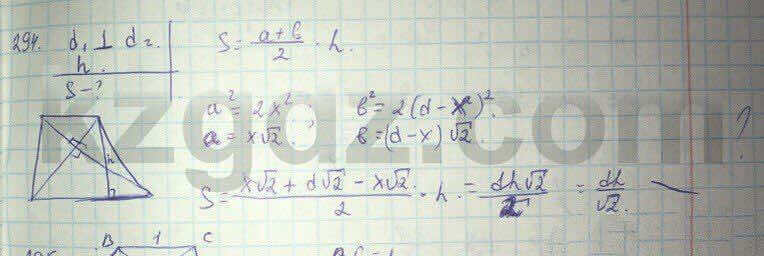 294. d₁ ⊥ d₂. S = (a+b)/2 · h.
h.
S - ?
a² = 2x²; b² = 2(d-x)².
a = x√2; b = (d-x)√2.
h
S = (x√2 + d√2 - x√2)/2 · h. = dh√2/2 = dh/√2.
?
B 1 C
kzgdz.com